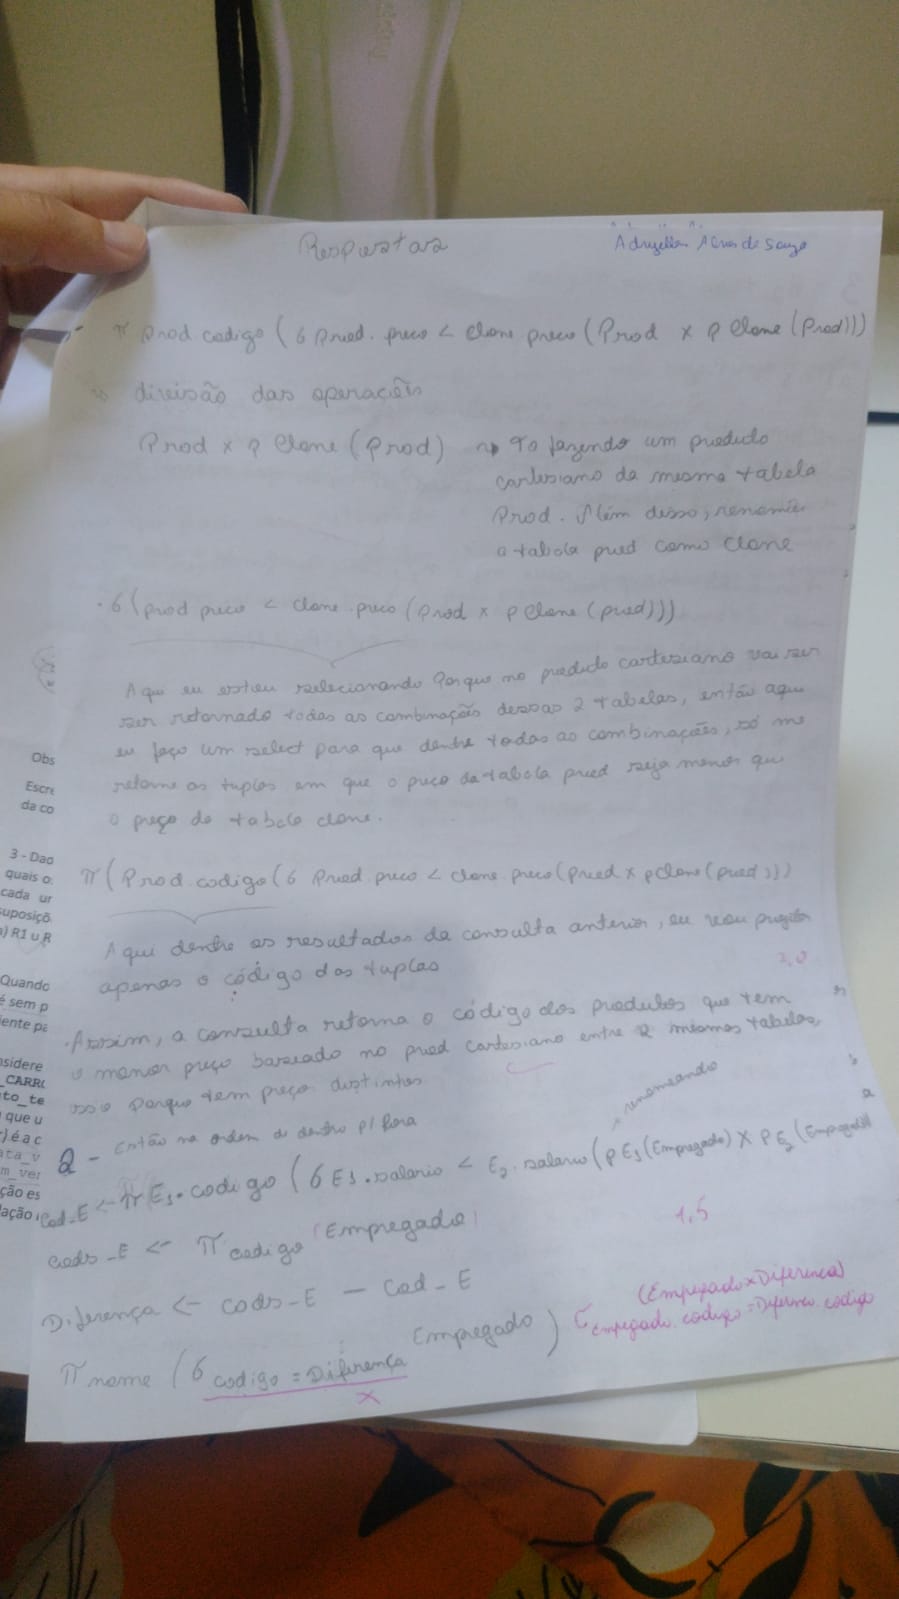 Respostas
Adryellen Alves de Souza
π Prod codigo (6 Prod. preco < Clone preco (Prod x ρ Clone (Prod)))
divisão das operações
Prod x ρ Clone (Prod) ~> To fazendo um produto
cartesiano da mesma tabela
Prod. Além disso, renomeiei
a tabela prod como clone
. 6 (prod preco < clone. preco (Prod x ρ Clone (prod)))
Aqui eu estou selecionando Porque no produto cartesiano vai ser
ser retornado todas as combinações dessas 2 tabelas, então aqui
eu faço um select para que dentre todas as combinações, só me
retorne as tuplas em que o preço da tabela prod seja menor que
o preço da tabela clone.
π (Prod codigo (6 Prod. preco < clone. preco (prod x ρ Clone (prod)))
Aqui dentre os resultados da consulta anterior, eu vou projetar
apenas o código das tuplas
.Assim, a consulta retorna o código dos produtos que tem
o menor preço baseado no prod cartesiano entre 2 mesmas tabelas,
isso porque tem preço distintos
renomeando
2 - Então na ordem de dentro p/ fora
Cod_E <- π E1. codigo (6 E1.salario < E2. salario (ρ E1 (Empregado) X ρ E2 (Empregado)
1,5
Cods_E <- π codigo (Empregado)
Diferença <- Cods_E - Cod_E
(Empregado x Diferença)
σ empregado. codigo = Diferença. codigo
π nome (6 codigo = Diferença Empregado)
x
Obs
Escre
da co
3 - Dao
quais o
cada ur
suposiçõ
) R1 ∪ R
Quando
é sem p
iente pa
nsidere
_CARR
to_te
que u
) é a c
ata_v
m_ver
ção es
lação